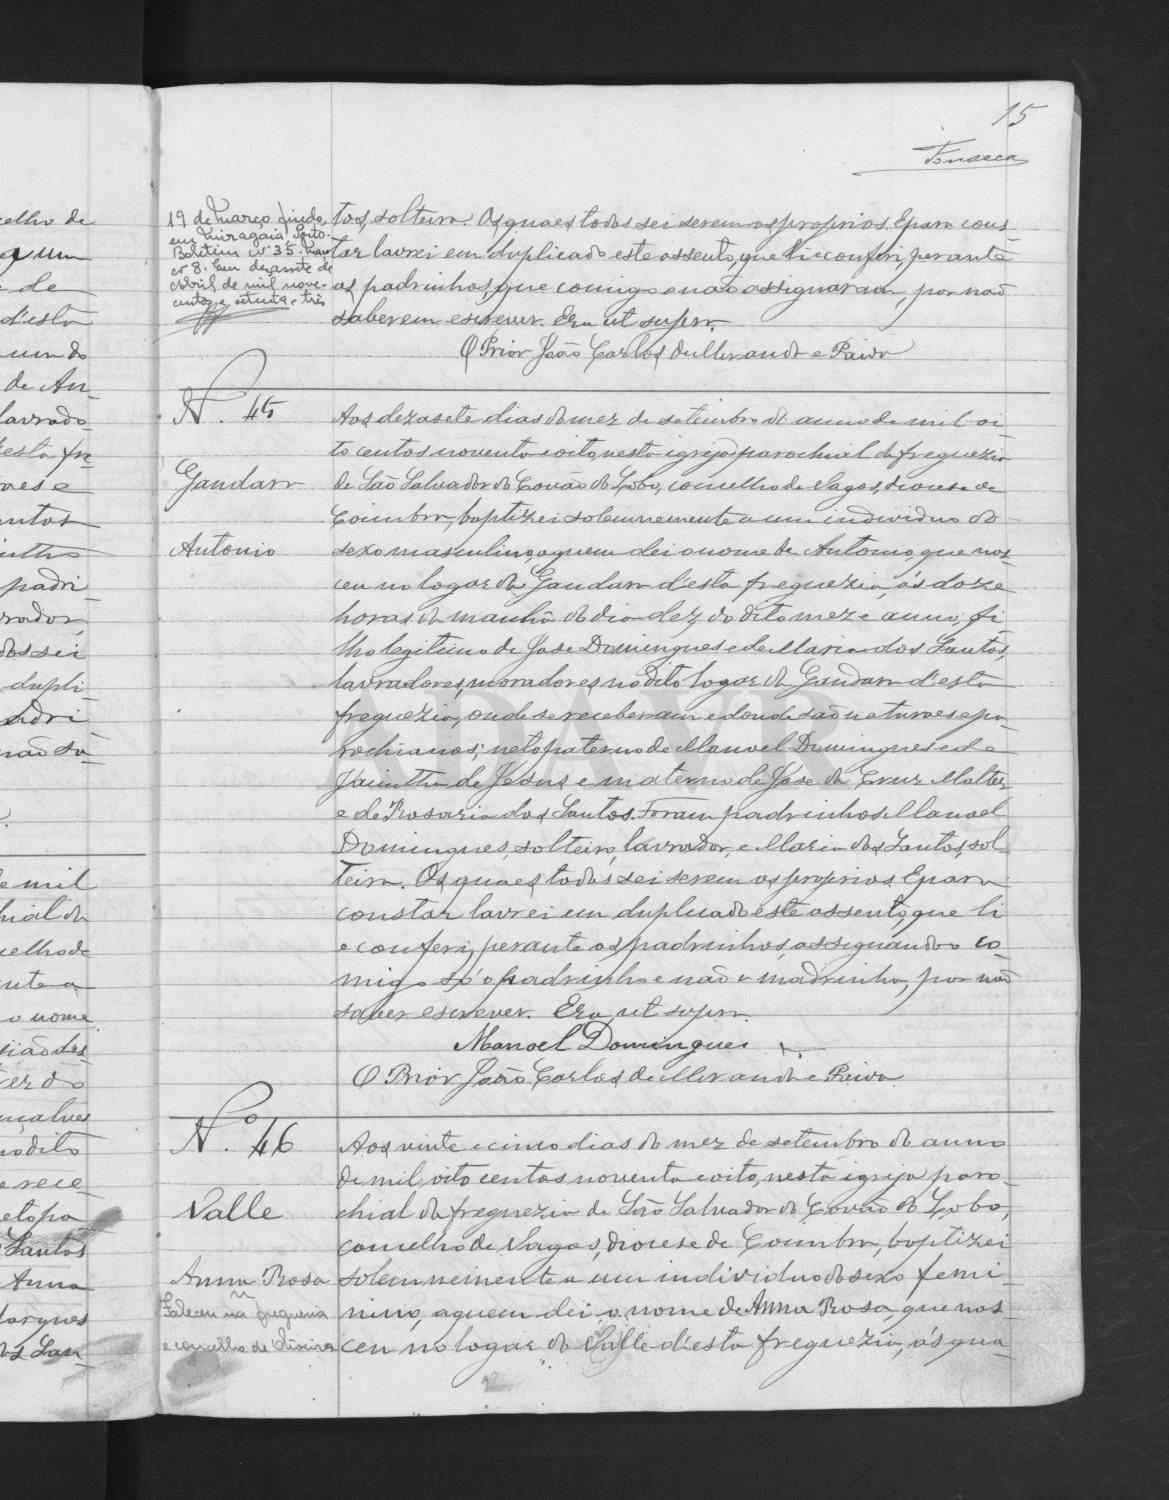 15
Fonseca
19 de Março findo,
em Miragaia Porto.
Boletim nº 35. Maço
nº 8. Em dezassete de
Abril de mil nove-
centos e setenta e três
tos, solteira. Os quaes todos sei serem os proprios. E para cons-
tar lavrei em duplicado este assento, que li e conferi, perante
os padrinhos, que comigo o não assignaram, por não
saberem escrever. Era ut supra.
O Prior João Carlos de Miranda e Paiva
N.º 45
Gandara
Antonio
Aos dezasete dias do mez de setembro do anno de mil oi-
to centos noventa e oito, nesta igreja parochial da freguezia
de São Salvador do Covão do Lobo, concelho de Vagos, diocese de
Coimbra, baptizei solemnemente a um individuo do
sexo masculino, a quem dei o nome de Antonio, que nas-
ceu no logar da Gandara d'esta freguezia, ás doze
horas da manhã do dia dez do dito mez e anno, fi-
lho legitimo de Jose Domingues e de Maria dos Santos,
lavradores, moradores no dito logar da Gandara d'esta
freguezia, onde se receberam e donde são naturaes e pa-
rochianos; neto paterno de Manoel Domingues e de
Jacintha de Jesus e materno de Jose da Cruz Maltez
e de Rosaria dos Santos. Foram padrinhos Manoel
Domingues, solteiro, lavrador, e Maria dos Santos, sol-
teira. Os quaes todos sei serem os proprios. E para
constar lavrei em duplicado este assento, que li
e conferi, perante os padrinhos, assignando co-
migo só o padrinho e não a madrinha, por não
saber escrever. Era ut supra.
Manoel Domingues
O Prior João Carlos de Miranda e Paiva
N.º 46
Valle
Anna Rosa
Faleceu na freguesia
e concelho de
Aos vinte e cinco dias do mez de setembro do anno
de mil oito centos noventa e oito, nesta igreja paro-
chial da freguezia de São Salvador do Covão do Lobo,
concelho de Vagos, diocese de Coimbra, baptizei
solemnemente a um individuo do sexo femi-
nino, a quem dei o nome de Anna Rosa, que nas-
ceu no logar do Valle d'esta freguezia, ás qua-